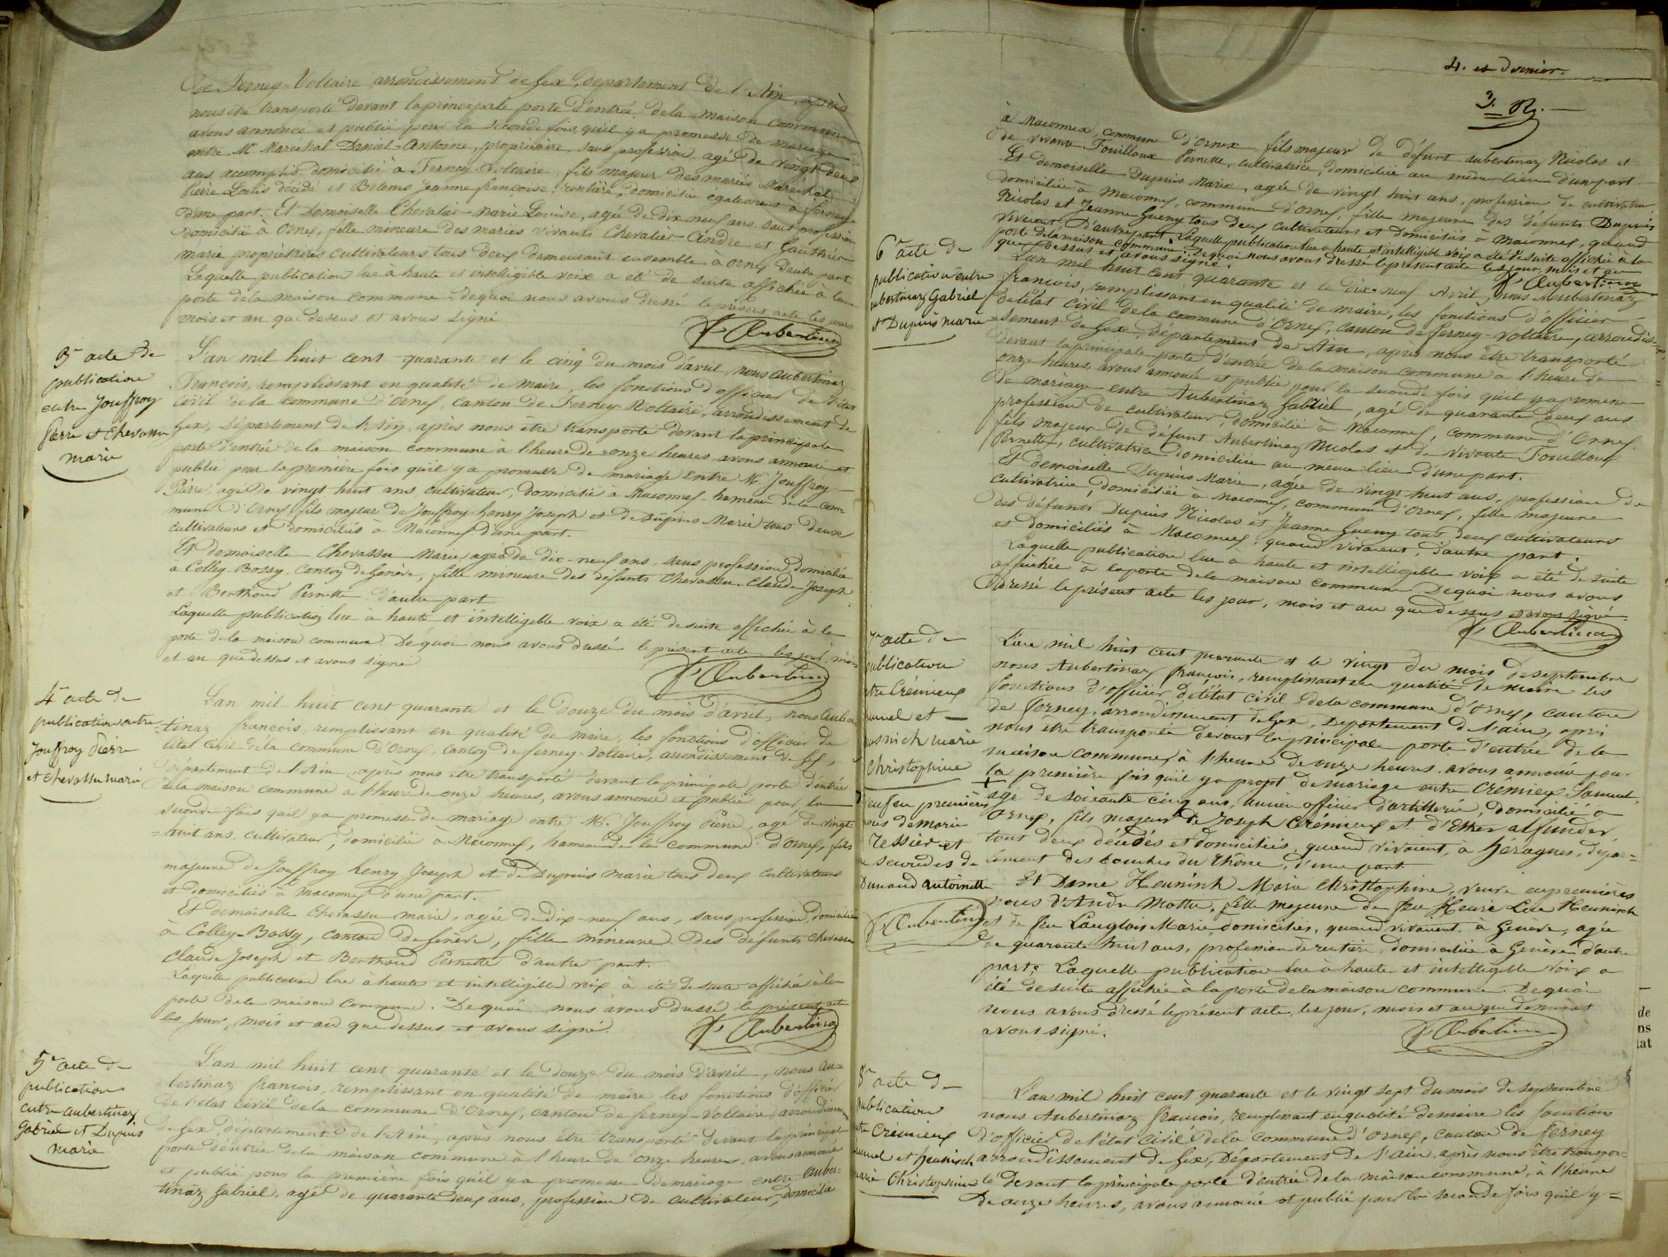 de Ferney-Voltaire arrondissement de Gex, Département de l'Ain, après
nous être transporté devant la principale porte d'entrée de la maison commune
avons annoncé et publié pour la seconde fois qu'il y a promesse de mariage
entre Mr Marechal Daniel-Antoine, propriétaire, sans profession agé de vingt-deux
ans accomplis domicilié à Ferney-Voltaire, fils majeur des mariés Marechal
Pierre Louis décédé et Jeanne françoise, rentière, domiciliée également à Ferney
d'une part. Et demoiselle Chevalier Marie Louise, agée de dix neuf ans sans profession
domiciliée à Ornex, fille mineure des mariés vivants Chevalier André et Gauthier
marie propriétaires cultivateurs tous deux demeurant ensemble à Ornex d'autre part
Laquelle publication lue à haute et intelligible voix a été de suite affichée à la
porte de la maison commune. De quoi nous avons dressé le présent acte les jour
mois et an que dessus et avons signé
fs Aubertinaz
3e acte de
publication
entre Jouffroy
Pierre et Chevassu
marie
L'an mil huit cent quarante et le cinq du mois d'avril, nous aubertinaz
François, remplissant en qualité de maire, les fonctions d'officier de l'état
civil de la commune d'Ornex, canton de Ferney-Voltaire, arrondissement de
Gex, Département de l'Ain, après nous être transporté devant la principale
porte d'entrée de la maison commune à l'heure de onze heures avons annoncé et
publié pour la première fois qu'il y a promesse de mariage entre Mr Jouffroy
Pierre, agé de vingt huit ans cultivateur, domicilié à Maconnex hameau de la com
mune d'Ornex, fils majeur de Jouffroy henry Joseph et de Dupuis Marie tous deux
cultivateurs et domiciliés à Maconnex d'une part.
Et demoiselle Chevassu Marie agée de dix-neuf ans sans profession domiciliée
à Colley-Bossy, canton de Genève, fille mineure des défunts Chevassu Claude Joseph
et Berthoud Pernette d'autre part
Laquelle publication lue à haute et intelligible voix a été de suite affichée à la
porte de la maison commune De quoi nous avons dressé le présent acte les jour, mois
et an que dessus et avons signé
fs Aubertinaz
4e acte de
publication entre
Jouffroy Pierre
et Chevassu marie
L'an mil huit cent quarante et le douze du mois d'avril, nous Auber
tinaz françois, remplissant en qualité de maire, les fonctions d'officier de
l'état civil de la commune d'Ornex, canton de ferney-Voltaire, arrondissement de Gex,
Département de l'Ain, après nous être transporté devant la principale porte d'entrée
de la maison commune à l'heure de onze heures, avons annoncé et publié pour la
seconde fois qu'il y a promesse de mariage entre Mr Jouffroy Pierre, agé de vingt
huit ans cultivateur, domicilié à Maconnex, hameau de la commune d'Ornex, fils
majeur de Jouffroy henry Joseph et de Dupuis marie tous deux cultivateurs
et domiciliés à Maconnex d'une part.
Et demoiselle Chevassu marie, agée de dix-neuf ans, sans profession, domiciliée
à Colley-Bossy, canton de Genève, fille mineure des défunts Chevassu
Claude Joseph et Berthoud Pernette d'autre part.
Laquelle publication lue à haute et intelligible voix a été de suite affichée à la
porte de la maison commune. De quoi nous avons dressé le présent acte
les jour, mois et an que dessus et avons signé
fs Aubertinaz
5e acte de
publication
entre aubertinaz
Gabriel et Dupuis
Marie
L'an mil huit cent quarante et le douze du mois d'avril, nous Au-
bertinaz françois, remplissant en qualité de maire les fonctions d'officier
de l'état civil de la commune d'Ornex, canton de ferney-Voltaire, arrondissement
de Gex, département de l'Ain, après nous être transporté devant la principale
porte d'entrée de la maison commune à l'heure de onze heures, avons annoncé
et publié pour la première fois qu'il y a promesse de mariage entre Auber-
tinaz Gabriel, agé de quarante deux ans, profession de cultivateur, domicilié
4. et dernier.
3. R.
à Maconnex, commune d'Ornex fils majeur de défunt aubertinaz Nicolas et
de vivante Fouilloux Pernette, cultivatrice, domiciliée au même lieu d'une part
Et demoiselle Dupuis Marie, agée de vingt huit ans, profession de cultivatrice
domiciliée à Maconnex, commune d'Ornex, fille majeure des défunts Dupuis
Nicolas et Jeanne Gueny tous deux cultivateurs et domiciliés à Maconnex, quand
vivaient d'autre part. Laquelle publication lue à haute et intelligible voix a été de suite affichée à la
porte de la maison commune. De quoi nous avons dressé le présent acte les jour, mois et an
que dessus et avons signé.
fs Aubertinaz
6e acte de
publication entre
aubertinaz Gabriel
et Dupuis marie
L'an mil huit cent quarante et le dix-neuf Avril, nous Aubertinaz
françois, remplissant en qualité de maire, les fonctions d'officier
de l'état civil de la commune d'Ornex, canton de ferney-Voltaire, arrondis-
sement de Gex, Département de l'Ain, après nous être transporté
devant la principale porte d'entrée de la maison commune à l'heure de
onze heures, avons annoncé et publié pour la seconde fois qu'il y a promesse
de mariage entre Aubertinaz Gabriel, agé de quarante deux ans
profession de cultivateur, domicilié à Maconnex, commune d'Ornex
fils majeur de défunt Aubertinaz Nicolas et de vivante Fouilloux
Pernette, cultivatrice domiciliée au même lieu d'une part.
Et demoiselle Dupuis Marie, agée de vingt huit ans, profession de
cultivatrice, domiciliée à Maconnex, commune d'Ornex, fille majeure
des défunts Dupuis Nicolas et Jeanne Gueny tous deux cultivateurs
et domiciliés à Maconnex, quand vivaient d'autre part.
Laquelle publication lue à haute et intelligible voix a été de suite
affichée à la porte de la maison commune De quoi nous avons
dressé le présent acte les jour, mois et an que dessus et avons signé
fs Aubertinaz
acte de
publication
Crémieux
et
marie
christophine
L'an mil huit cent quarante et le vingt du mois de septembre
nous Aubertinaz françois, remplissant en qualité de maire les
fonctions d'officier de l'état civil de la commune d'Ornex, canton
de ferney, arrondissement de Gex, Département de l'ain, après
nous être transporté devant la principale porte d'entrée de la
maison commune, à l'heure de onze heures avons annoncé pour
la première fois qu'il y a projet de mariage entre Crémieux Samuel
agé de soixante cinq ans, ancien officier d'artillerie, domicilié à
Ornex, fils majeur de Joseph Crémieux et d'Ether
tout deux décédés et domiciliés, quand vivaient, à dépar-
tement des bouches du Rhône, d'une part
veuf en premières
noces de marie
Tessier et
en secondes de
Dunand antoinette
fs Aubertinaz
Et Dame Heunisch Marie Christophine, veuve en premières
noces d'André Mottu, fille majeure de feu Heunisch
et de feu Langlois Marie domiciliés, quand vivaient à Genève, agée
de quarante huit ans, profession de rentière, domiciliée à Genève d'autre
part. Laquelle publication lue à haute et intelligible voix a
été de suite affichée à la porte de la maison commune. De quoi
nous avons dressé le présent acte, les jour, mois et an que dessus et
avons signé.
fs Aubertinaz
8e acte de
publication
entre Crémieux
Samuel et Heunisch
marie Christophine
L'an mil huit cent quarante et le vingt sept du mois de septembre
nous Aubertinaz françois, remplissant en qualité de maire les fonctions
d'officier de l'état civil de la commune d'Ornex, canton de ferney
arrondissement de Gex, Département de l'ain, après nous être transpor-
té devant la principale porte d'entrée de la maison commune, à l'heure
de onze heures, avons annoncé et publié pour la seconde fois qu'il y
de
ns
tat